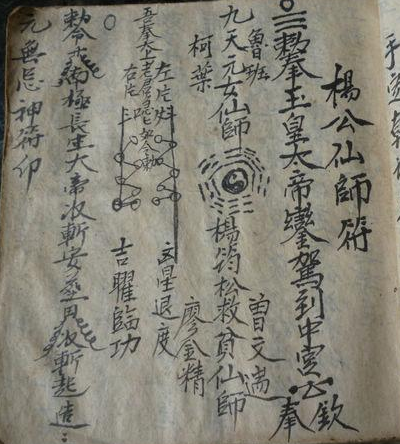 楊公仙師符
奉玉皇大帝鑾駕到中宮 欽奉
魯班
九天元女仙師 楊筠松救貧仙師
曾文遄
柯葉
廖金精
左片
文星退度
吾奉太上老君
右片
吉曜臨功
敕令 極長生大帝 斬安 用 斬起造
元無忌神符印